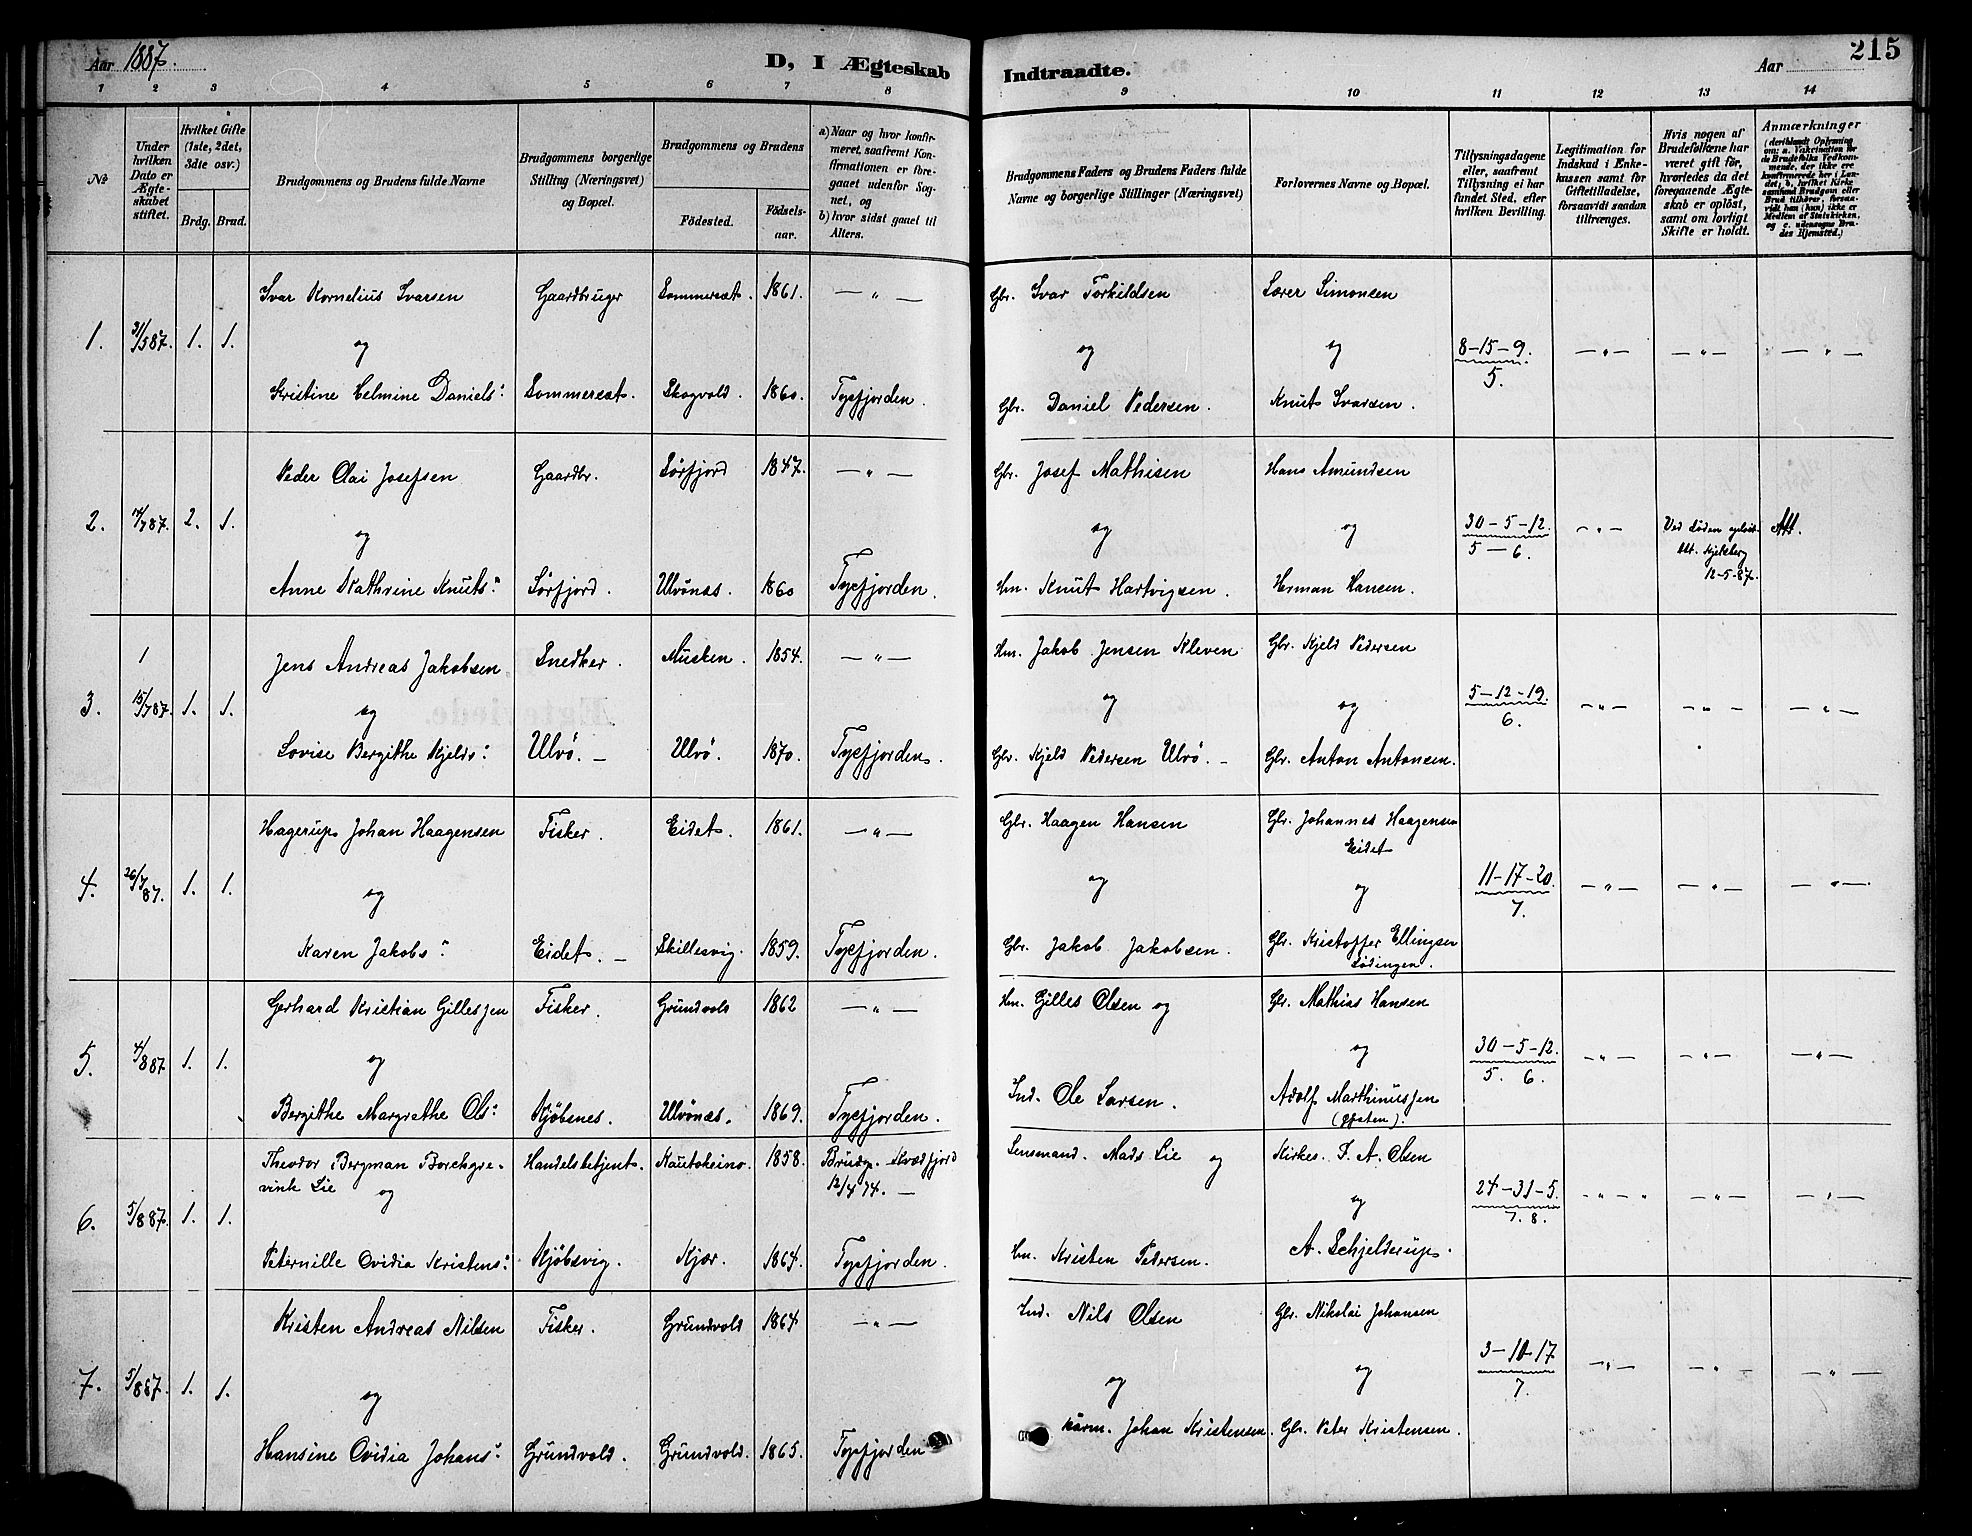 Aar 1887.
D, I Ægteskab Indtraadte.
Aar
215
1 2 3 4 5 6 7 8 9 10 11 12 13 14
No
Under hvilken Dato er Ægteskabet stiftet.
Hvilket Gifte (1ste, 2det, 3dte osv.)
Brdg. Brud.
Brudgommens og Brudens fulde Navne
Brudgommens borgerlige Stilling (Næringsvei) og Bopæl.
Brudgommens og Brudens
Fødested.
Fødselsaar.
a) Naar og hvor konfirmeret, saafremt Konfirmationen er foregaaet udenfor Sognet, og
b) hvor sidst gaaet til Alters.
Brudgommens Faders og Brudens Faders fulde Navne og borgerlige Stillinger (Næringsvei)
Forlovernes Navne og Bopæl.
Tillysningsdagene eller, saafremt Tillysning ei har fundet Sted, efter hvilken Bevilling.
Legitimation for Indskud i Enkekassen samt for Giftetilladelse, forsaavidt saadan tiltrænges.
Hvis nogen af Brudefolkene har været gift før, hvorledes da det foregaaende Ægteskab er opløst, samt om lovligt Skifte er holdt.
Anmærkninger (deriblandt Oplysning om: a. Vakcination for de Brudefolks Vedkommende, der ikke ere konfirmerede her i Landet, b. hvilket Kirkesamfund Brudgom eller Brud tilhører, forsaavidt han (hun) ikke er Medlem af Statskirken, og c. udensogns Brudes Hjemsted.)
Ivar Kornelius Ivarsen Gaardbruger Sommerset. 1861. — " — Gbr. Ivar Torkildsen Lærer Simonsen
1. 31/5 87. 1. 1. og og og 8-15-9. / 5. — " — — " — — " —
Kristine Helmine Daniels: Sommerset. Skogvold. 1860. Tysfjorden. Gbr. Daniel Pedersen. Knut Ivarsen.
Peder Olai Josefsen Gaardbr. Sørfjord 1847. — " — Gbr. Josef Mathisen Hans Amundsen
2. /7 87. 2. 1. og og og 30-5-12. / 5-6. — " — Ved Døden Kjelsberg 12-5-87. Att.
Anne Kathrine Knuts: Sørfjord. Ulvönæs. 1860 Tysfjorden. Hm. Knut Hartvigsen. Herman Hansen.
Jens Andreas Jakobsen Snedker. Musken. 1854. — " — Hm. Jakob Jensen Kleven Gbr. Kjeld Pedersen
3. 15/7 87. 1. 1. og og og 5-12-19. / 6. — " — — " — — " —
Lovise Bergithe Kjelds: Ulvö. — Ulvö. 1870. Tysfjorden. Gbr. Kjeld Pedersen Ulvö. — Gbr. Anton Antonsen.
Hagerup Johan Haagensen Fisker. Eidet. 1861. — " — Gbr. Haagen Hansen Gbr. Johannes Haagensen Eidet
4. 26/7 87. 1. 1. og og og 11-17-20. / 7. — " — — " — — " —
Karen Jakobs: Eidet. — Skillesvig. 1859. Tysfjorden. Gbr. Jakob Jakobsen. Gbr. Kristoffer Ellingsen Lødingen.
Gerhard Kristian Gillesjen Fisker. Grundvold 1862 — " — Hm. Gilles Olsen og Gbr. Mathias Hansen
5. 4/8 87 1. 1. og og 30-5-12. / 5. 6. — " — — " — — " —
Bergithe Margrethe Ols: Kjöbsnes. Ulvönæs. 1869. Tysfjorden. Ind. Ole Larsen. Adolf Marthinussen
Theodor Bergman Borchgrevink Lie Handelsbetjent. Kautokeino. 1858. Brudg. Kvædfjord 12/4 74. — Lensmand. Mads Lie og Kirkes. J. A. Olsen
6. 5/8 87. 1. 1. og og 24-31-5. / 7. 8. — " — — " — — " —
Peternille Ovidia Kristens: Kjöbsvig. Kjær. 1864. Tysfjorden. Hm. Kristen Pedersen. A. Schjelderup.
Kristen Andreas Nilsen Fisker. Grundvold 1864 — " — Ind. Nils Olsen Gbr. Nikolai Johansen
7. 5/8 87. 1. 1. og og og 3-10-17 / 7. — " — — " — — " —
Hansine Ovidia Johans: Grundvold. Grundvold. 1865. Tysfjorden Johan Kristensen. Gbr. Peter Kristensen.